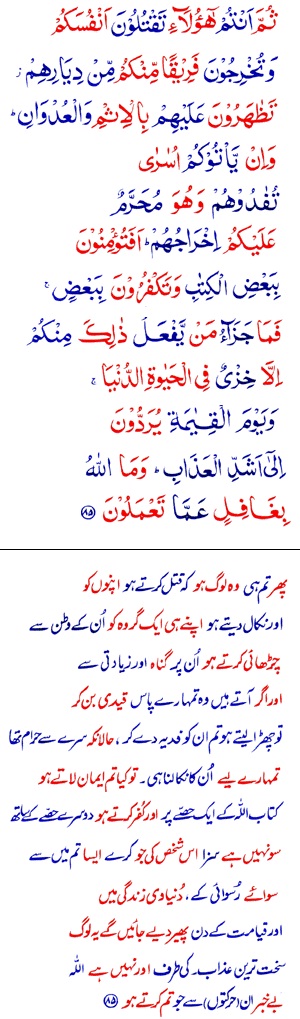 ثُمَّ اَنْتُمْ هٰٓؤُلَآءِ تَقْتُلُوْنَ اَنْفُسَكُمْ
وَتُخْرِجُوْنَ فَرِيْقًا مِّنْكُمْ مِّنْ دِيَارِهِمْ ز
تَظٰهَرُوْنَ عَلَيْهِمْ بِالْاِثْمِ وَالْعُدْوَانِ ط
وَاِنْ يَّاْتُوْكُمْ اُسٰرٰى
تُفٰدُوْهُمْ وَهُوَ مُحَرَّمٌ
عَلَيْكُمْ اِخْرَاجُهُمْ ط اَفَتُؤْمِنُوْنَ
بِبَعْضِ الْكِتٰبِ وَتَكْفُرُوْنَ بِبَعْضٍ ج
فَمَا جَزَآءُ مَنْ يَّفْعَلُ ذٰلِكَ مِنْكُمْ
اِلَّا خِزْىٌ فِى الْحَيٰوةِ الدُّنْيَا ج
وَيَوْمَ الْقِيٰمَةِ يُرَدُّوْنَ
اِلٰٓى اَشَدِّ الْعَذَابِ ط وَمَا اللّٰهُ
بِغَافِلٍ عَمَّا تَعْمَلُوْنَ ۸۵
پھر تم ہی وہ لوگ ہو کہ قتل کرتے ہو اپنوں کو
اور نکال دیتے ہو اپنے ہی ایک گروہ کو اُن کے وطن سے
چڑھائی کرتے ہو اُن پر گناہ اور زیادتی سے
اور اگر آتے ہیں وہ تمہارے پاس قیدی بن کر
تو چھڑا لیتے ہو تم ان کو فدیہ دے کر، حالانکہ سرے سے حرام تھا
تمہارے لیے اُن کا نکالنا ہی۔ تو کیا تم ایمان لاتے ہو
کتاب اللہ کے ایک حصّے پر اور کُفر کرتے ہو دوسرے حصّے کے ساتھ
سو نہیں ہے سزا اس شخص کی جو کرے ایسا تم میں سے
سوائے رُسوائی کے، دُنیاوی زندگی میں
اور قیامت کے دن پھیر دیے جائیں گے یہ لوگ
سخت ترین عذاب کی طرف اور نہیں ہے اللہ
بے خبر ان (حرکتوں) سے جو تم کرتے ہو ۸۵